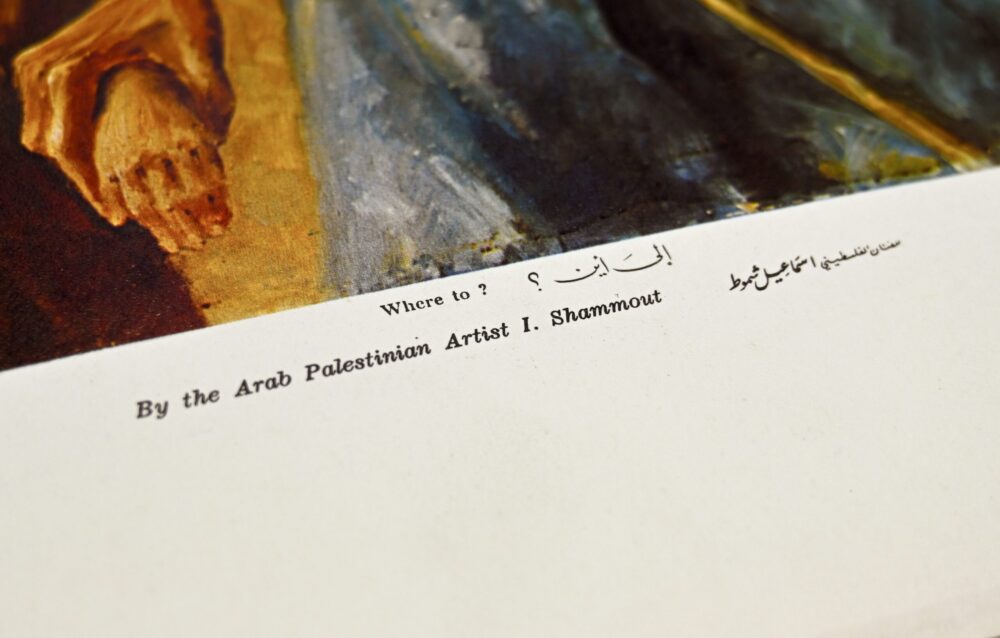 Where to ? إلى اين ؟
By the Arab Palestinian Artist I. Shammout
للفنان الفلسطيني اسماعيل شموط